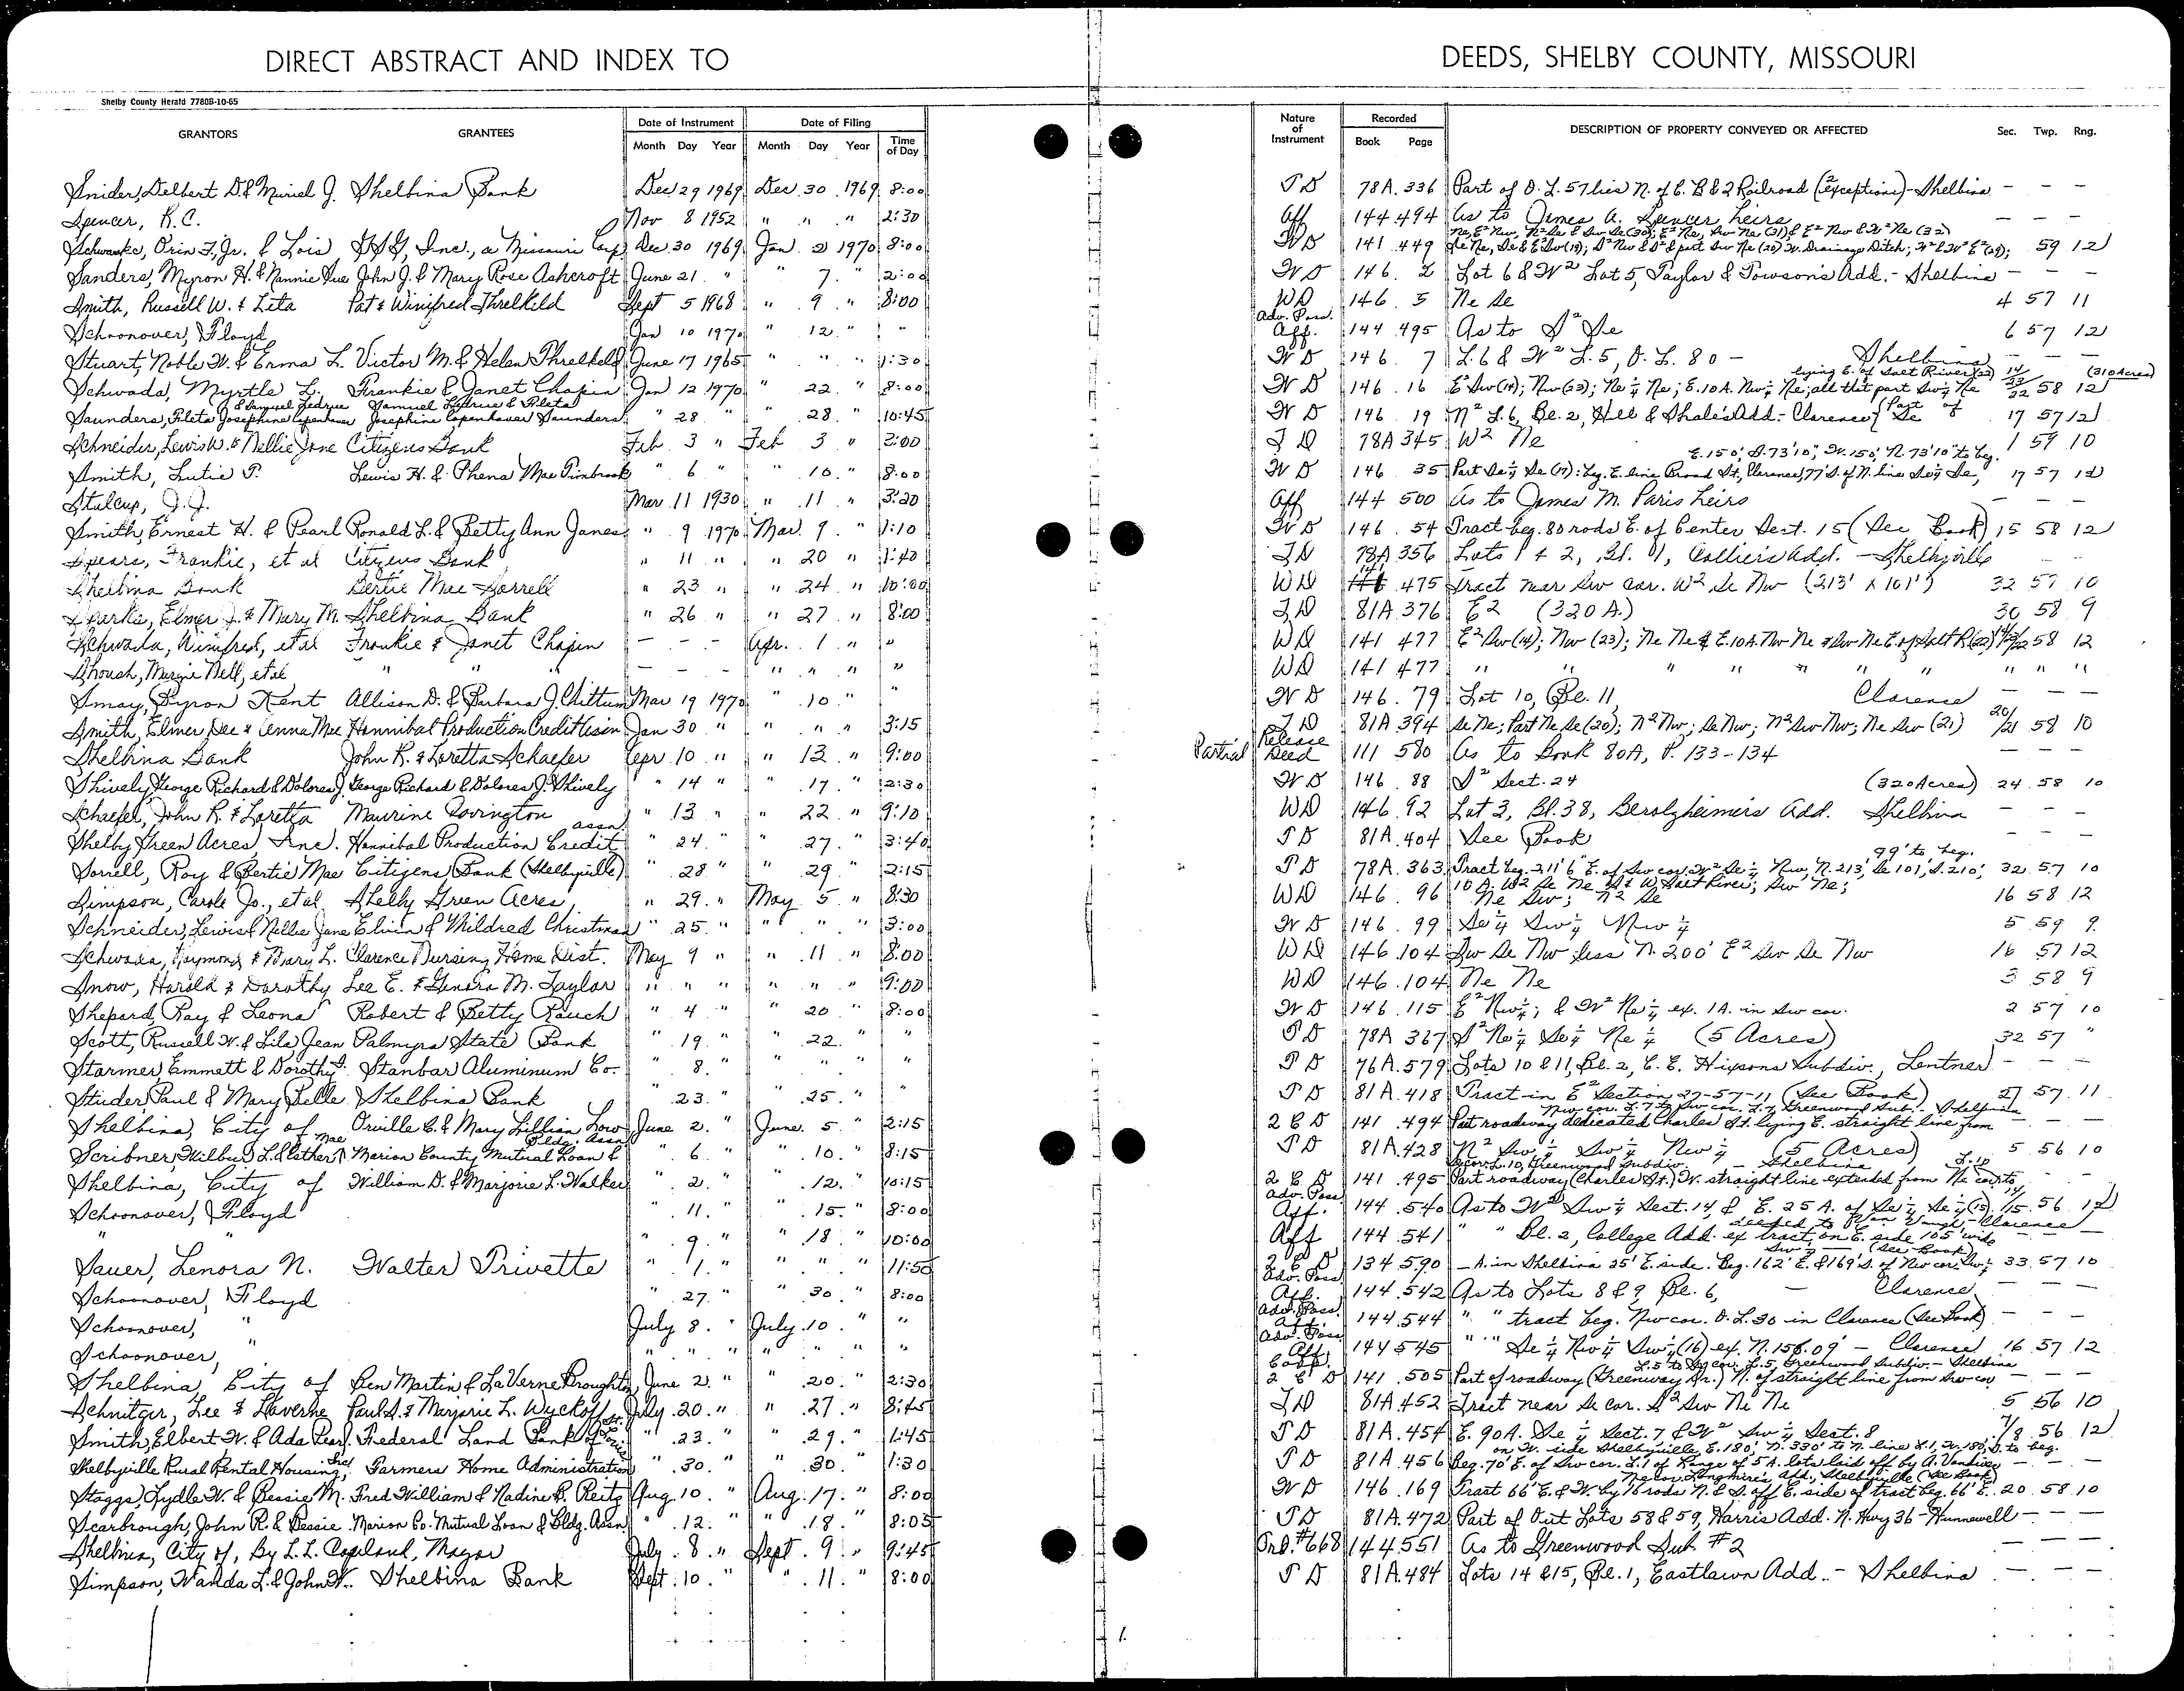 DIRECT ABSTRACT AND INDEX TO DEEDS, SHELBY COUNTY, MISSOURI
Shelby County Herald 7780B-10-65
GRANTORS GRANTEES Date of Instrument Date of Filing Nature of Instrument Recorded DESCRIPTION OF PROPERTY CONVEYED OR AFFECTED Sec. Twp. Rng.
Month Day Year Month Day Year Time of Day Book Page
Snider, Delbert D. & Muriel J. Shelbina Bank Dec 29 1969 Dec 30 1969 8:00 T D 78A 336 Part of O. L. 57 lies N. of C. B & Q Railroad (2 exceptions) - Shelbina - - -
Spencer, R. C. Nov 8 1952 " " " 2:30 Aff 144 494 As to James A. Spencer heirs - - -
Schwanke, Orin F. Jr. & Lois Inc., a Missouri Corp Dec 30 1969 Jan. 2 1970 8:00 W D 141 449 59 12
Sanders, Myron H. & Nannie Sue John J. & Mary Rose Ashcroft June 21 " " 7. " 2:00 W D 146. 2 Lot 6 & W² Lot 5, Taylor & Towson's Add. - Shelbina - - -
Smith, Russell W. & Leta Pat & Winifred Threlkeld Sept 5 1968 " 9 " 8:00 WD 146 5 Ne Se 4 57 11
Schoonover, Floyd Jan 10 1970 " 12. " " Adv. Poss. Aff. 144 495 As to S² Se 6 57 12
Stuart, Noble W. & Erma L. Victor M. & Helen Threlkeld June 17 1965 " " " 1:30 W D 146. 7 L. 6 & W² L. 5, O. L. 80 - Shelbina - - -
Schwada, Myrtle L. Frankie & Janet Chapin Jan 12 1970 " 22 " 8:00 W D 146 16 E² Sw (14); Nw (23); Ne ¼ Ne; E. 10A. Nw ¼ Ne; all that part Sw ¼ Ne lying E. of Salt River (22) (310 Acres) 14/23/22 58 12
Saunders, Fleta Josephine Copenhaver & Samuel Fedrue Samuel Fedrue & Fleta Josephine Copenhaver Saunders " 28 " " 28. " 10:45 W D 146 19 N² L. 6, Bl. 2, Hill & Shale's Add. - Clarence (Part of Se 17 57 12
Schneider, Lewis W. & Nellie Jane Citizens Bank Feb 3 " Feb 3 " 2:00 T D 78A 345 W² Ne 1 59 10
Smith, Lutie P. Lewis H. & Phena Mae Timbrook " 6 " " 10. " 8:00 W D 146 35 Part Se ¼ Se (17): beg. E. line Broad St., Clarence, 77' S. of N. line Se ¼ Se, E. 150', S. 73'10", W. 150', N. 73'10" to beg. 17 57 12
Stalcup, J. J. Mar 11 1930 " 11 " 3:20 Aff 144 500 As to James M. Paris heirs - - -
Smith, Ernest H. & Pearl Ronald L. & Betty Ann Janes " 9 1970 Mar. 9 " 1:10 W D 146. 54 Tract beg. 80 rods E. of Center Sect. 15 (See Book) 15 58 12
Spears, Frankie, et al Citizens Bank " 11 " " 20 " 1:40 T D 78A 356 Lots 1 & 2, Bl. 1, Collier's Add. - Shelbyville -
Shelbina Bank Bertie Mae Sorrell " 23 " " 24 " 10:00 WD 141 475 Tract near Sw cor. W² Se Nw (213' x 101') 32 57 10
Sparks, Elmer J. & Mary M. Shelbina Bank " 26 " " 27 " 8:00 T D 81A 376 E² (320 A.) 30 58 9
Schwada, Winifred, et al Frankie & Janet Chapin - - - Apr. 1 " " WD 141 477 E² Sw (14); Nw (23); Ne Ne & E. 10A. Nw Ne & Sw Ne E. of Salt R. (22) 58 12
Shoush, Margie Nell, et al " " - - - " " " " WD 141 477 " " " " " " " " " "
Smay, Byron Kent Allison D. & Barbara J. Chittum Mar 19 1970 " 10 " " W D 146. 79 Lot 10, Bl. 11, Clarence - - -
Smith, Elmer Dee & Anna Mae Hannibal Production Credit Assn Jan 30 " " " " 3:15 T D 81A 394 Se Ne; Part Ne Se (20); N² Nw; Se Nw; N² Sw Nw; Ne Sw (21) 20/21 58 10
Shelbina Bank John R. & Loretta Schaefer Apr 10 " " 13 " 9:00 Partial Release Deed 111 580 As to Book 80A, P. 133-134 - - -
Shively, George Richard & Dolores J. George Richard & Dolores J. Shively " 14 " " 17. " 2:30 W D 146 88 S² Sect. 24 (320 Acres) 24 58 10
Schaefer, John R. & Loretta Maurine Covington " 13 " " 22 " 9:10 WD 146 92 Lot 3, Bl. 38, Berolzheimer's Add. Shelbina - - -
Shelby Green Acres, Inc. Hannibal Production Credit assn " 24 " " 27. " 3:40 T D 81A. 404 See Book - - -
Sorrell, Roy & Bertie Mae Citizens Bank (Shelbyville) " 28 " " 29 " 2:15 T D 78A. 363 Tract beg. 211'6" E. of Sw cor. W² Se ¼ Nw, N. 213', Se 101', S. 210', 99' to beg. 32 57 10
Simpson, Carole Jo., et al Shelby Green Acres, " 29. " May 5 " 8:30 WD 146 96 10 A. W² Se Ne W Salt River; Sw Ne; Ne Sw; N² Se 16 58 12
Schneider, Lewis & Nellie Jane Elvin & Mildred Christman " 25. " " " " 3:00 W D 146 99 Se ¼ Sw ¼ Nw ¼ 5 59 9
Schwada, Raymond & Mary L. Clarence Nursing Home Dist. May 9 " " 11 " 8:00 WD 146.104 Sw Se Nw less N. 200' E² Sw Se Nw 16 57 12
Snow, Harold & Dorothy Lee E. & Genora M. Taylor " " " " " " 9:00 WD 146.104 Ne Ne 3 58 9
Shepard, Ray & Leona Robert & Betty Rauch " 4 " " 20 " 8:00 W D 146.115 E² Nw ¼; & W² Ne ¼ ex. 1A. in Sw cor. 2 57 10
Scott, Russell W. & Lila Jean Palmyra State Bank " 19. " " 22. " T D 78A 367 S² Ne ¼ Se ¼ Ne ¼ (5 Acres) 32 57 "
Starmer Emmett & Dorothy Stanbar Aluminum Co. " 8. " " " " " T D 76A.579 Lots 10 & 11, Bl. 2, C. E. Hixsons Subdiv., Lentner - - -
Studer, Paul & Mary Belle Shelbina Bank " 23. " " 25. " " T D 81A. 418 Tract in E² Section 27-57-11 (See Book) 27 57 11
Shelbina, City of Orville C. & Mary Lillian Low June 2. " June 5 " 2:15 2 C D 141 494 Part roadway dedicated Charles St. lying E. straight line from Nw cor. L. 7 to Sw cor. L. 7 Greenwood Sub. - Shelbina - - -
Scribner, Wilbur L. & Esther Mae Marion County Mutual Loan & Bldg. Assn " 6. " " 10. " 8:15 T D 81A. 428 N² Sw ¼ Sw ¼ Nw ¼ (5 Acres) 5 56 10
Shelbina, City of William D. & Marjorie L. Walker " 2. " " 12. " 10:15 2 C D 141 495 Part roadway (Charles St.) W. straight line extended from Ne cor L. 10 to Se cor. L. 10, Greenwood Subdiv. - Shelbina
Schoonover, Floyd " 11. " " 15. " 8:00 Adv. Poss Aff. 144 540 As to W² Sw ¼ Sect. 14 & E. 25 A. of Se ¼ Se ¼ (15) 14/15 56 12
" " " 9. " " 18 " 10:00 Aff 144 541 " " Bl. 2, College Add. ex tract on E. side 105' wide deeded to - Clarence -
Sauer, Lenora N. Walter Privette " 1. " " " " 11:50 2 C D 134 590 - A. in Shelbina 25' E. side. Beg. 162' E. & 169' S. of Nw cor. Sw; (See Book) 33 57 10
Schoonover, Floyd " 27. " " 30 " 8:00 Adv. Poss Aff. 144 542 As to Lots 8 & 9 Bl. 6, - Clarence - -
Schoonover, " July 8. " July 10. " " Adv. Poss. Aff. 144 544 " " tract beg. Nw cor. O. L. 30 in Clarence (See Book) - -
Schoonover, " " " " " " " Adv. Poss Aff. 144 545 " " Se ¼ Nw ¼ Sw ¼ (16) ex. N. 156.09' - Clarence 16 57 12
Shelbina, City of Ben Martin & LaVerne Broughton June 2. " " 20. " 2:30 Corp. 2 C D 141 505 Part of roadway (Greenway Dr.) N. of straight line from Sw cor L. 5 to Se cor. L. 5, Greenwood Subdiv. - Shelbina - - -
Schnitzer, Lee & Laverne Paul S. & Marjorie L. Wyckoff July 20. " " 27. " 8:45 T D 81A 452 Tract near Se cor. S² Sw Ne Ne 5 56 10
Smith, Elbert W. & Ada Pearl Federal Land Bank of St. Louis " 23. " " 29. " 1:45 T D 81A. 454 E. 90A. Se ¼ Sect. 7 & W² Sw ¼ Sect. 8 7/8 56 12
Shelbyville Rural Rental Housing, Inc. Farmers Home Administration " 30. " " 30 " 1:30 T D 81A 456 Beg. 70' E. of Sw cor. L. 1 of Range of 5 A. lots laid off by A. Vandiver on W. side Shelbyville, E. 180', N. 330' to N. line L. 1, W. 180', S. to beg. - - -
Staggs, Lydle W. & Bessie M. Fred William & Nadine B. Reitz Aug 10. " Aug. 17. " 8:00 W D 146 169 Tract 66' E. & W. by 16 rods N. & S. off E. side of tract beg. 66' E. Ne cor. Longmire's Add., Shelbyville (See Book) 20 58 10
Scarbrough, John R. & Bessie Marion Co. Mutual Loan & Bldg. Assn " 12. " " 18. " 8:05 T D 81A. 472 Part of Out Lots 58 & 59, Harris Add. N. Hwy 36 - Hunnewell - - -
Shelbina, City of, By L. L. Copeland, Mayor July 8 " Sept. 9 " 9:45 Ord. #668 144 551 As to Greenwood Sub #2 - - -
Simpson, Wanda L. & John W. Shelbina Bank Sept. 10. " " 11. " 8:00 T D 81A. 484 Lots 14 & 15, Bl. 1, Eastlawn Add. - Shelbina - - -